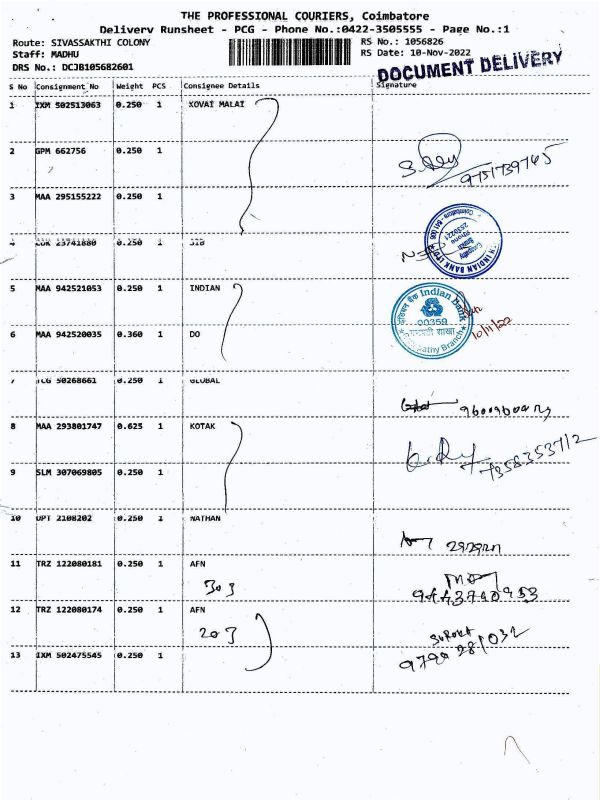 THE PROFESSIONAL COURIERS, Coimbatore
Delivery Runsheet - PCG - Phone No.:0422-3505555 - Page No.:1
Route: SIVASSAKTHI COLONY
Staff: MADHU
DRS No.: DCJB105682601
RS No.: 1056826
RS Date: 10-Nov-2022
DOCUMENT DELIVERY
S No Consignment No Weight PCS Consignee Details Signature
1 IXM 502513063 0.250 1 KOVAI MALAI
2 GPM 662756 0.250 1
9751739745
3 MAA 295155222 0.250 1
4 23741880 0.250 1 JIB
INDIAN BANK
5 MAA 942521053 0.250 1 INDIAN
Indian Bank
00359
10/11/22
6 MAA 942520035 0.360 1 DO
7 TCG 50268661 0.250 1 GLOBAL
8 MAA 293801747 0.625 1 KOTAK
7358353712
9 SLM 307069805 0.250 1
10 OPT 2108202 0.250 1 NATHAN
11 TRZ 122080181 0.250 1 AFN
303
9443740953
12 TRZ 122080174 0.250 1 AFN
203
13 IXM 502475545 0.250 1